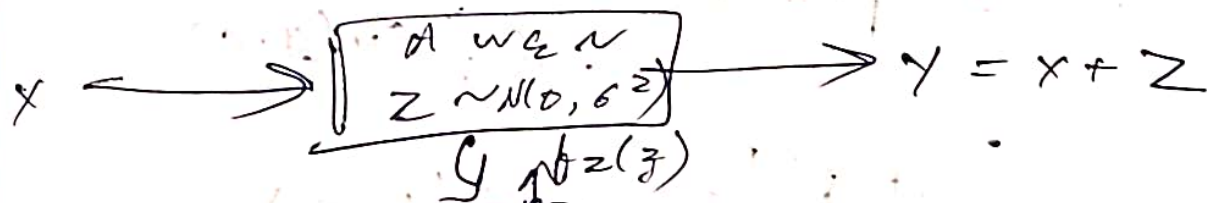 A W G N
X → Z ~ N(0, σ²) → Y = X + Z
f_Z(z)